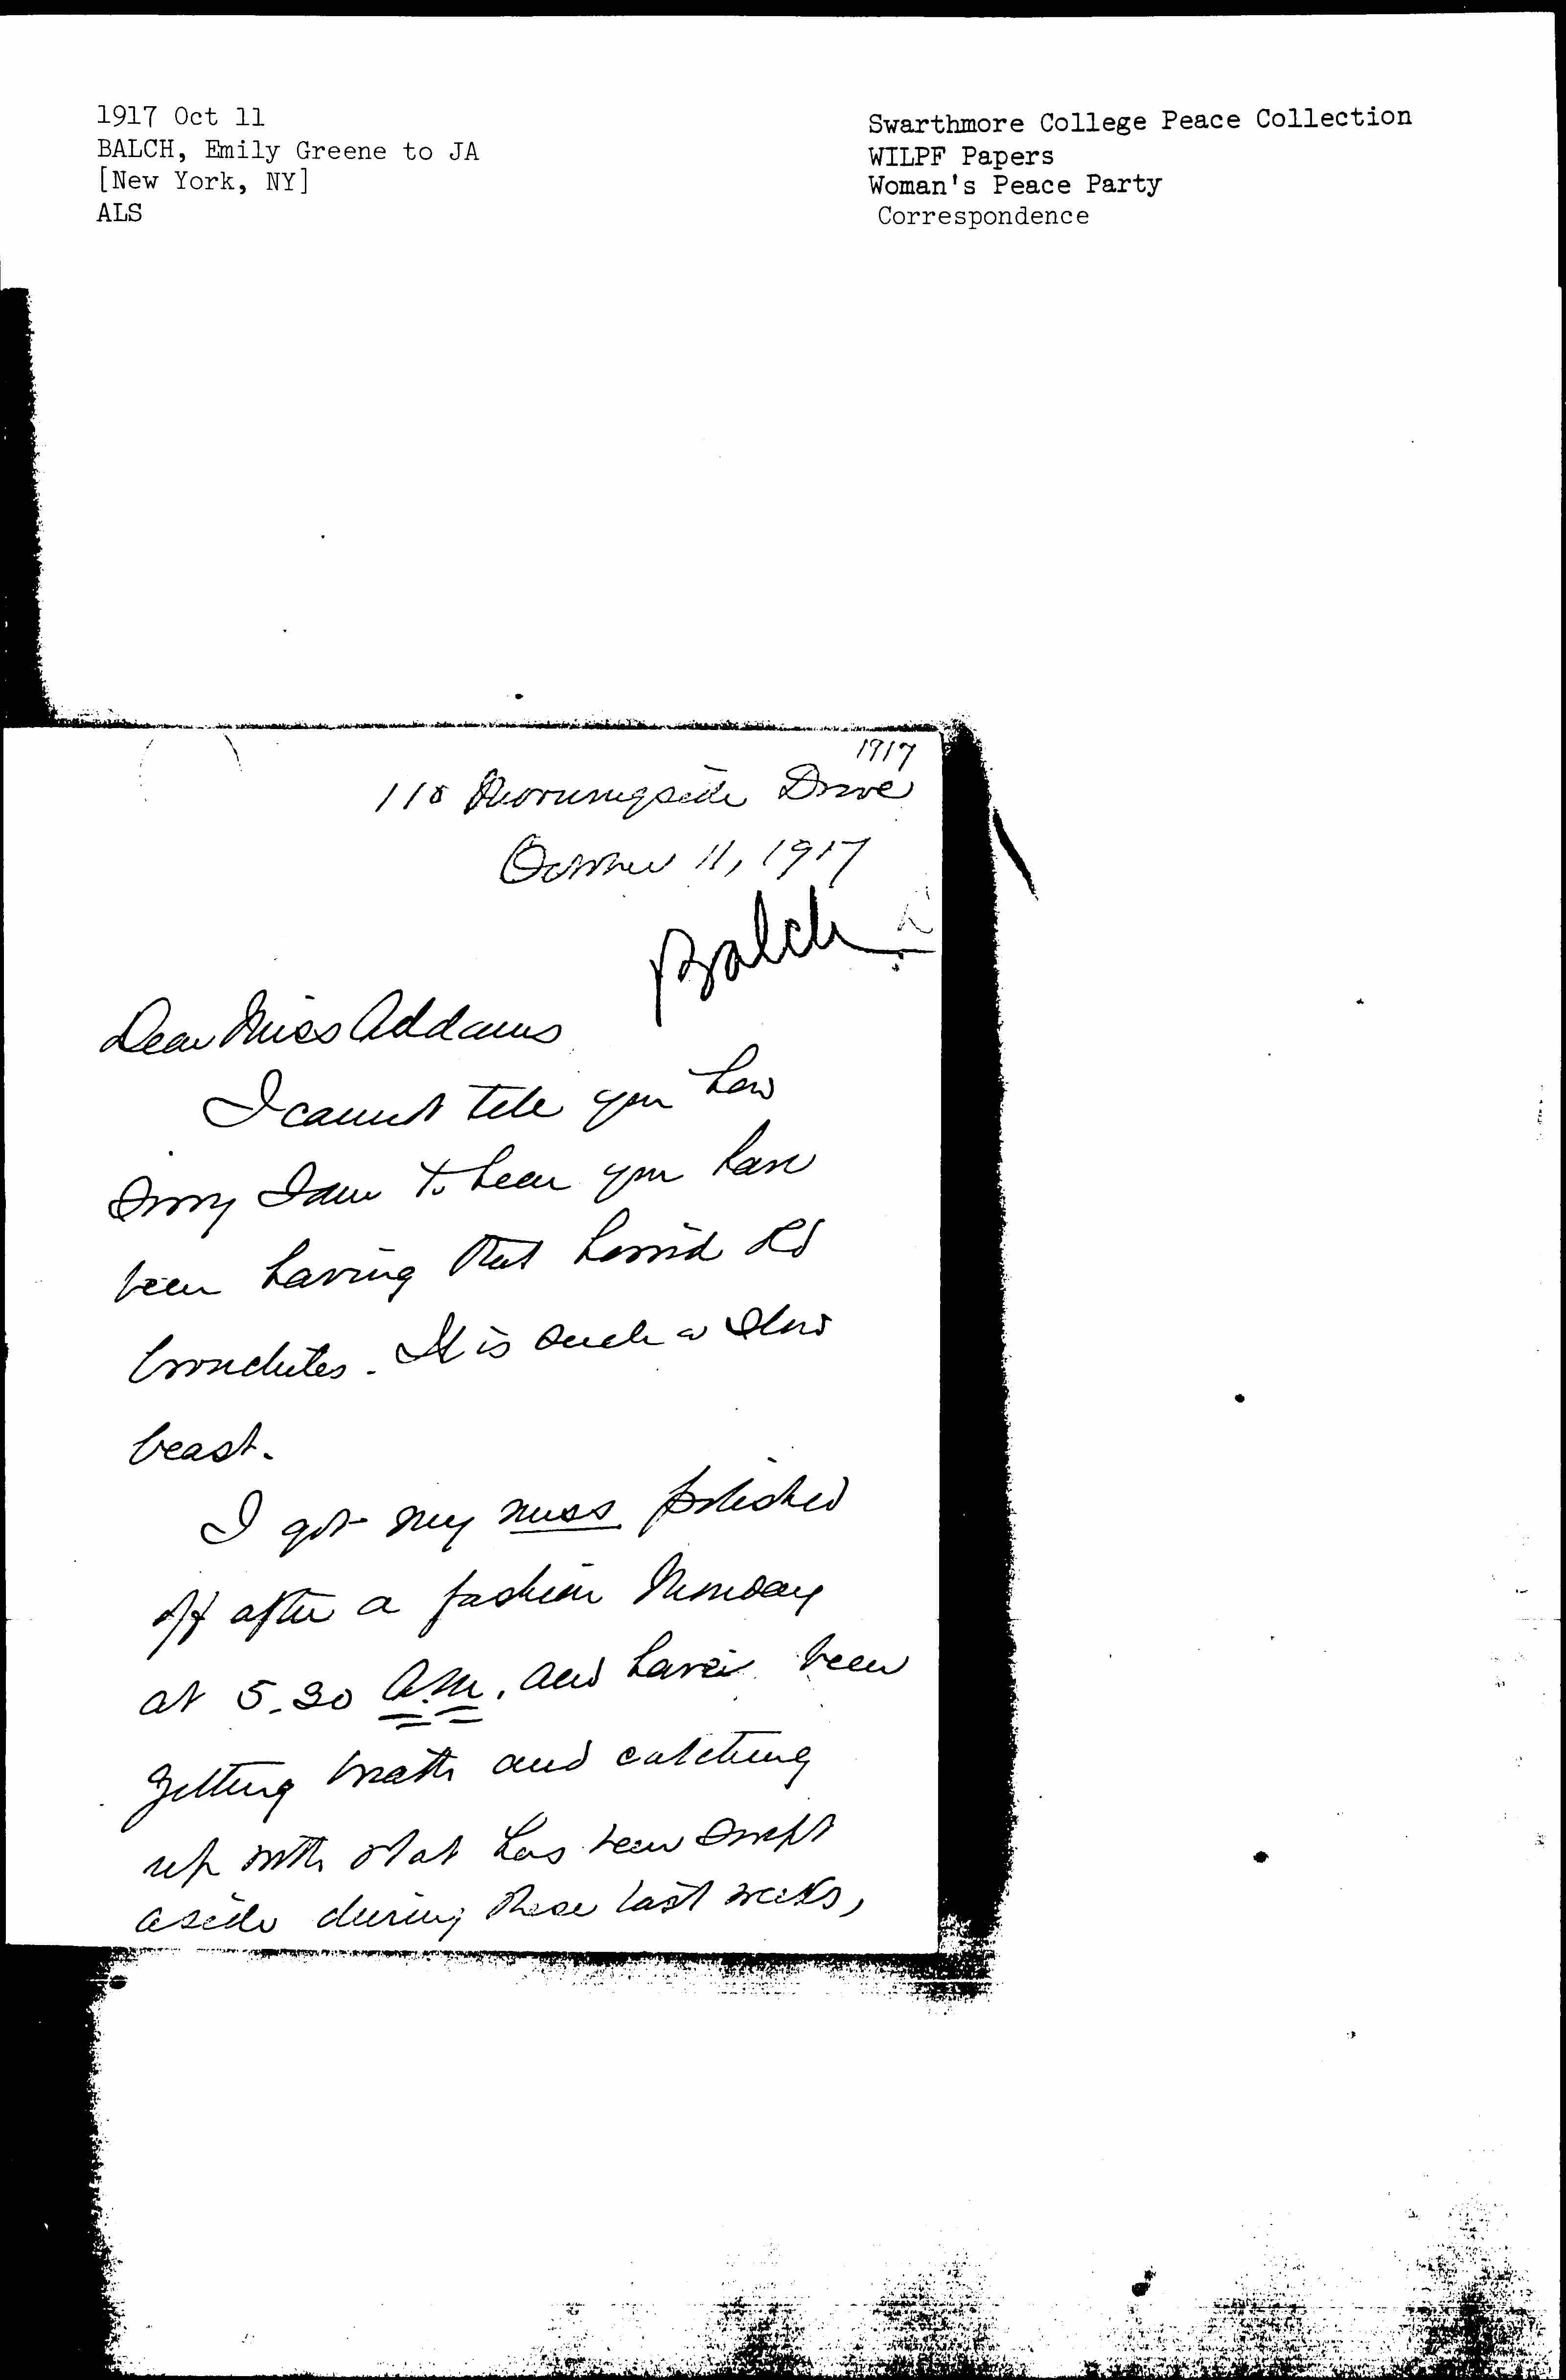 1917 Oct 11
BALCH, Emily Greene to JA
[New York, NY]
ALS
Swarthmore College Peace Collection
WILPF Papers
Woman's Peace Party
Correspondence
1917
118 Morningside Drive
October 11, 1917
Balch
Dear Miss Addams
I cannot tell you how
sorry I am to hear you have
been having that horrid old
bronchitis. It is such a slow
beast.
I got my mss polished
off after a fashion Monday
at 5.30 A.M. and have been
getting breath and catching
up with what has been swept
aside during these last weeks,